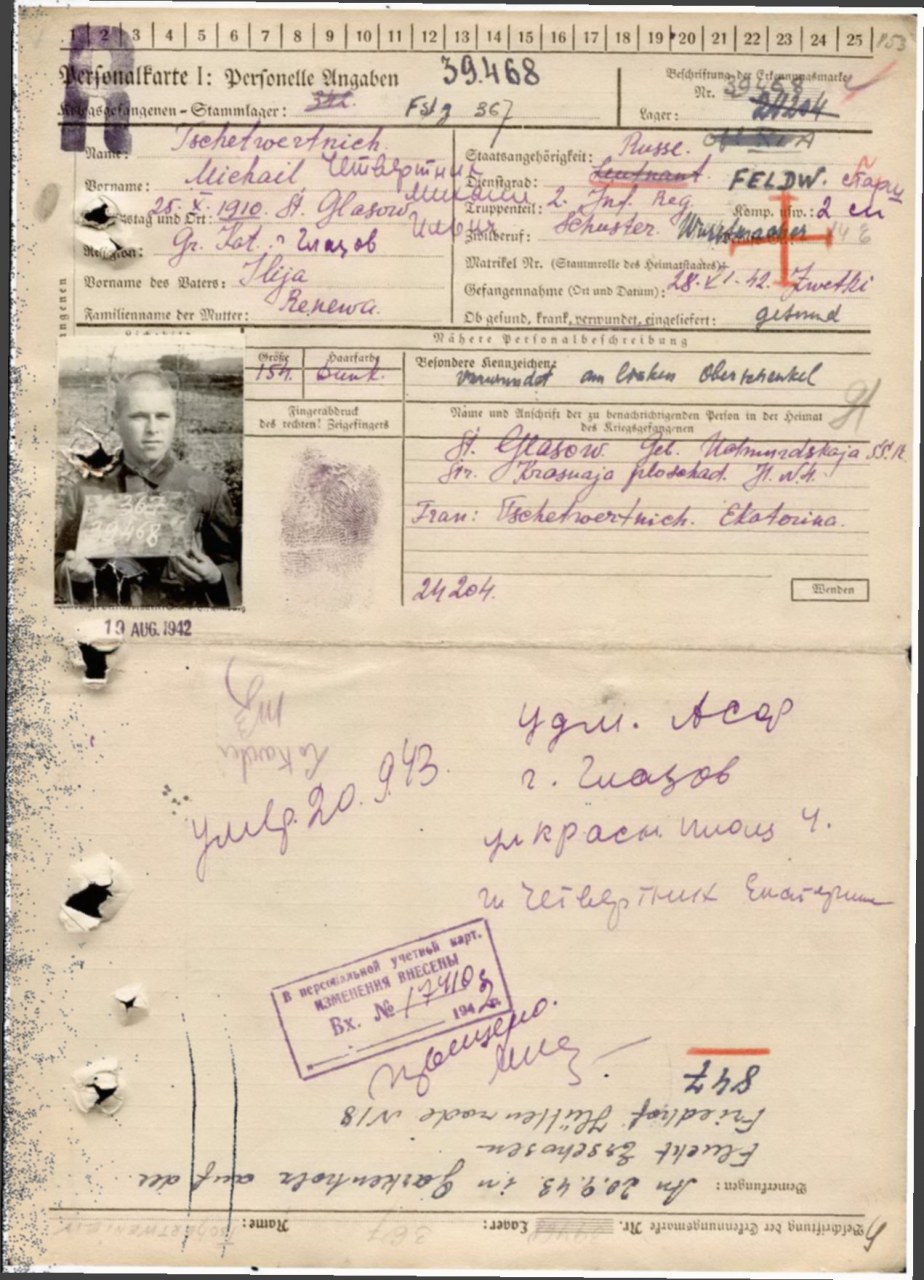 1 2 3 4 5 6 7 8 9 10 11 12 13 14 15 16 17 18 19 20 21 22 23 24 25 153
Personalkarte I: Personelle Angaben 39468
Beschriftung der Erkennungsmarke
Kriegsgefangenen-Stammlager: Fstg 367
Nr. 39468
Lager: 24204
Name: Tschetwertnich
Vorname: Michail Четвертних
Михаил
Ильич
Geburtstag und Ort: 25. X. 1910. St. Glasow
Religion: Gr. Kat. г. Глазов
Vorname des Vaters: Ilija
Familienname der Mutter: Renewa.
Staatsangehörigkeit: Russe.
Dienstgrad: Leutnant. FELDW.
Truppenteil: 2. Inf. Reg. Komp. usw.:
Zivilberuf: Schuster.
Matrikel Nr. (Stammrolle des Heimatstaates):
Gefangennahme (Ort und Datum): 28.
Ob gesund, krank, verwundet, eingeliefert: gesund
Nähere Personalbeschreibung
Größe Haarfarbe
154. Dunk.
Besondere Kennzeichen:
verwundet am linken Oberschenkel
Fingerabdruck
des rechten! Zeigefingers
Name und Anschrift der zu benachrichtigenden Person in der Heimat
des Kriegsgefangenen
St. Glasow. Geb. Udmurdskaja SS.R.
Str. Krasnaja ploschad. H. N4.
Frau: Tschetwertnich. Ekatorina.
367
39468
24204.
Wenden
19 AUG. 1942
Удм. Асср
г. Глазов
ул красн площ 4.
Четвертних Екатерина
умер. 20.9.43.
В персональной учетной карт.
ИЗМЕНЕНИЯ ВНЕСЕНЫ
Вх. № 17410
194
847
Friedhof Hüttenrode N 18
Flucht Erschosen
Bemerkungen: Am 20.9.43 in auf der
Beschriftung der Erkennungsmarke Nr. Lager: 367 Name: